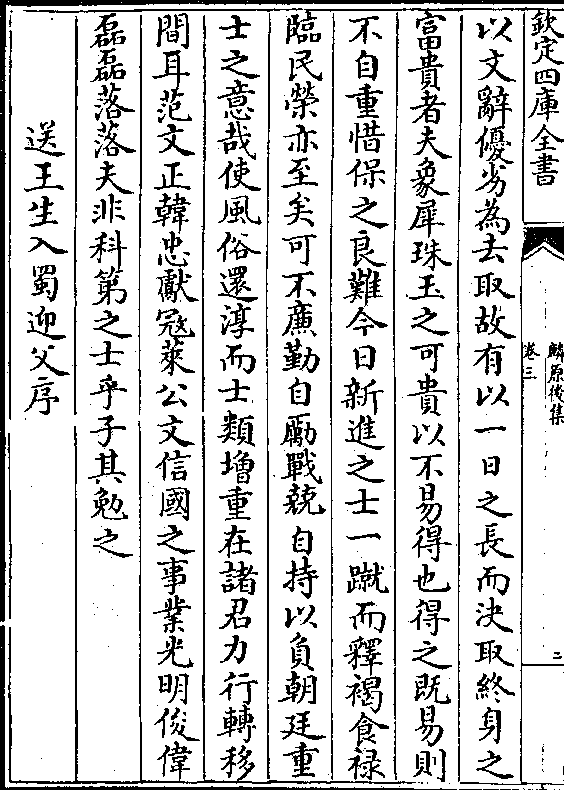 欽定四庫全書
麟原後集
卷三
二
以文辭優劣為去取故有以一日之長而決取終身之
富貴者夫象犀珠玉之可貴以不易得也得之既易則
不自重惜保之良難今日新進之士一蹴而釋褐食祿
臨民榮亦至矣可不廉勤自勵戰兢自持以負朝廷重
士之意哉使風俗還淳而士類增重在諸君力行轉移
間耳范文正韓忠獻寇萊公文信國之事業光明俊偉
磊磊落落夫非科第之士乎子其勉之
送王生入蜀迎父序